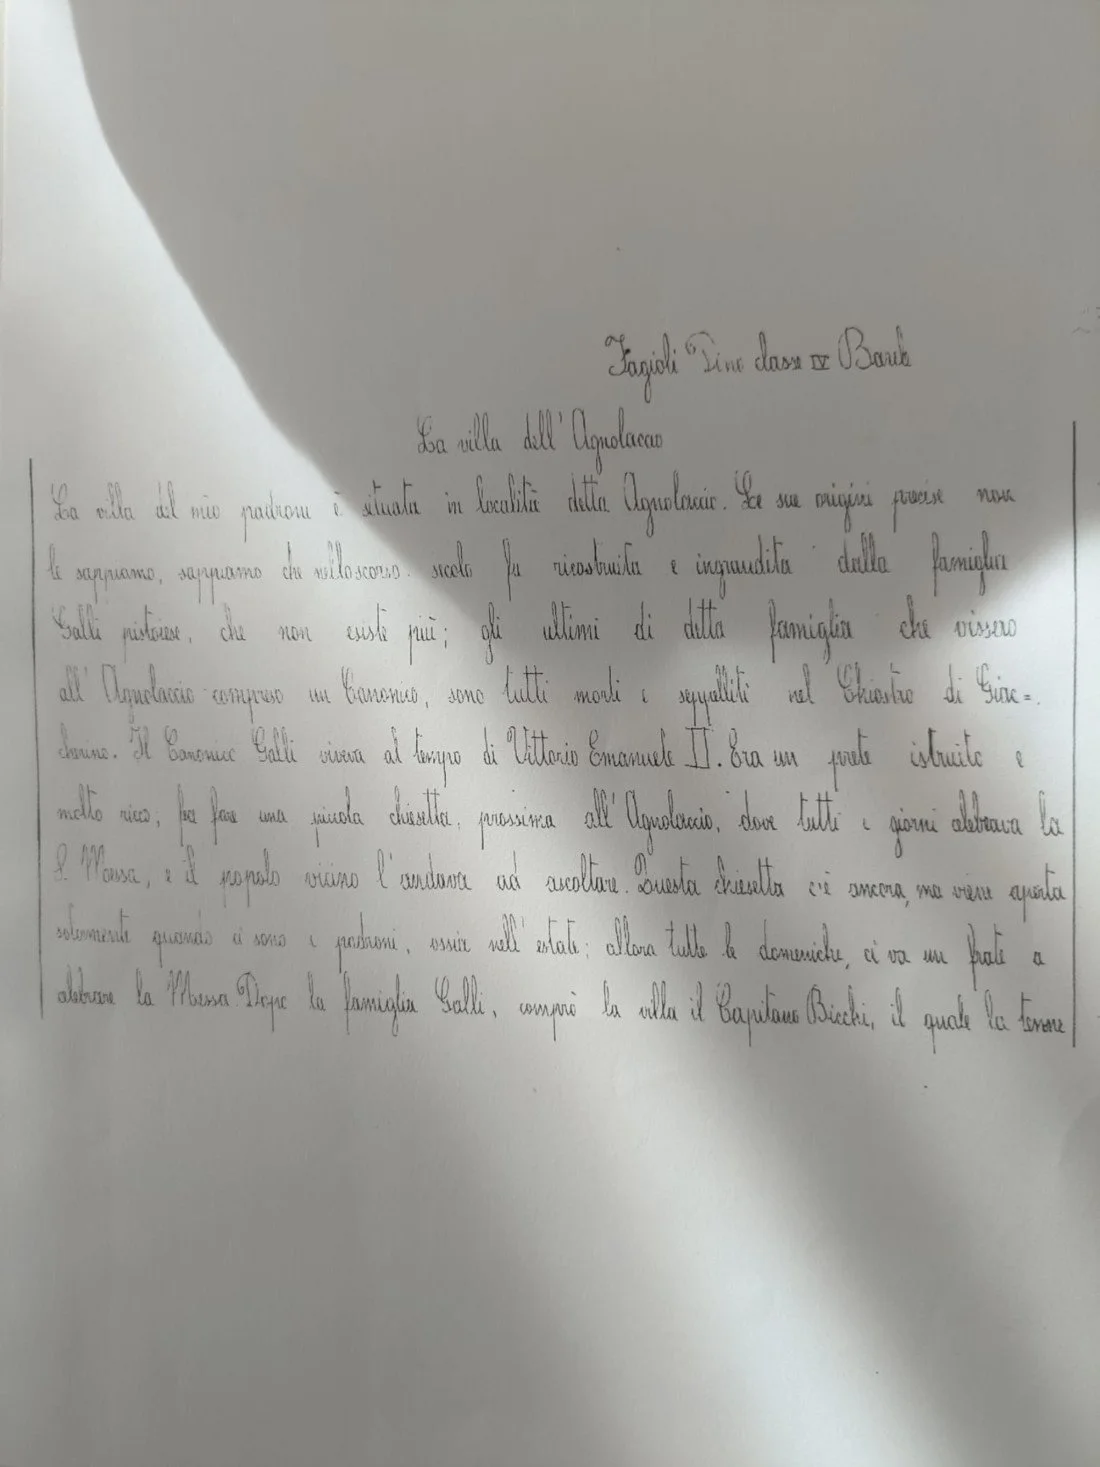 Fagioli Dino classe IV Barile
La villa dell' Agnolaccio
La villa del mio padrone è situata in località detta Agnolaccio. Le sue origini precise non
le sappiamo, sappiamo che nello scorso secolo fu ricostruita e ingrandita dalla famiglia
Galli pistoiese, che non esiste più; gli ultimi di detta famiglia che vissero
all' Agnolaccio compreso un Canonico, sono tutti morti e seppelliti nel Chiostro di Giac=
cherino. Il Canonico Galli viveva al tempo di Vittorio Emanuele II. Era un prete istruito e
molto ricco; fu fare una piccola chiesetta, prossima all' Agnolaccio, dove tutti i giorni celebrava la
S. Messa, e il popolo vicino l'andava ad ascoltare. Questa chiesetta c'è ancora, ma viene aperta
solamente quando ci sono i padroni, ossia nell' estate; allora tutte le domeniche, ci va un frate a
celebrare la Messa. Dopo la famiglia Galli, comprò la villa il Capitano Bicchi, il quale la tenne